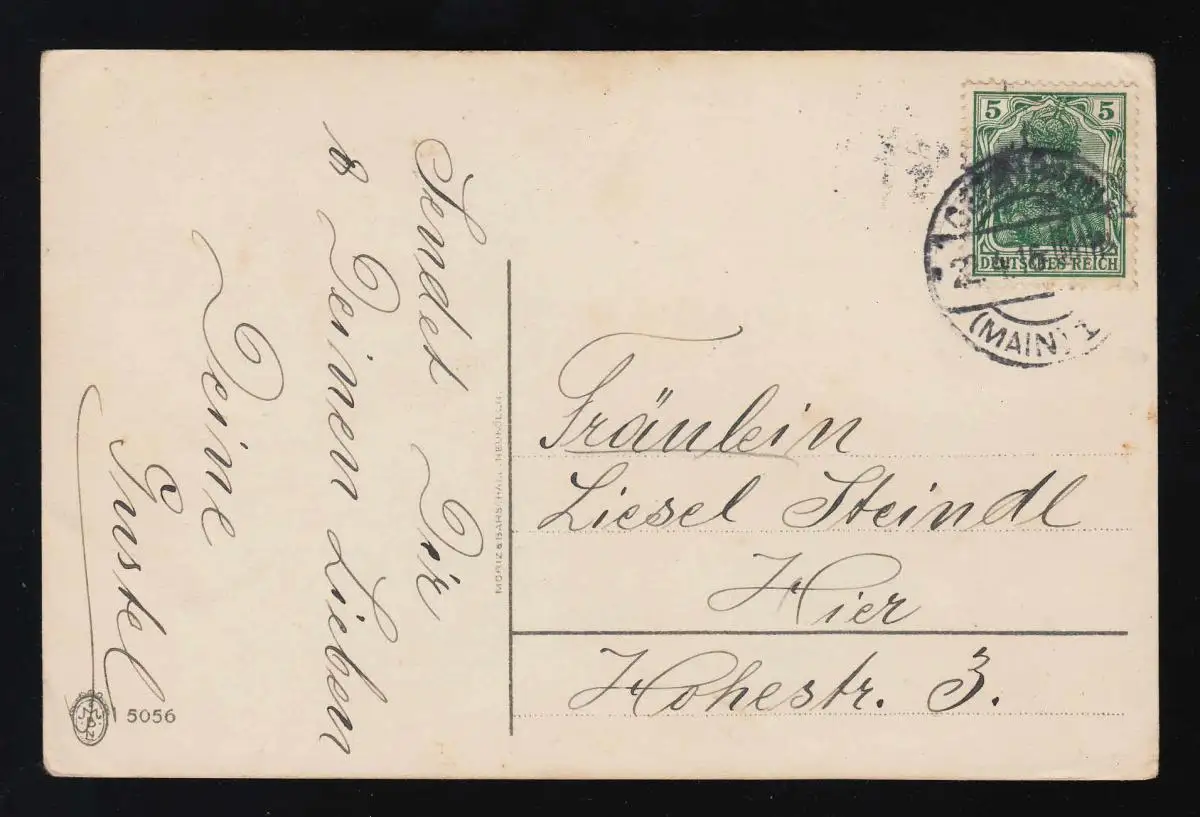 Sendet Dir
& Deinen Lieben
Deine
Gustel
5056
MORIZ & BARSCHALL, NEUKÖLLN.
5 5
DEUTSCHES REICH
(MAIN) 1
Fräulein
Liesel Steindl
Hier
Hohestr. 3.